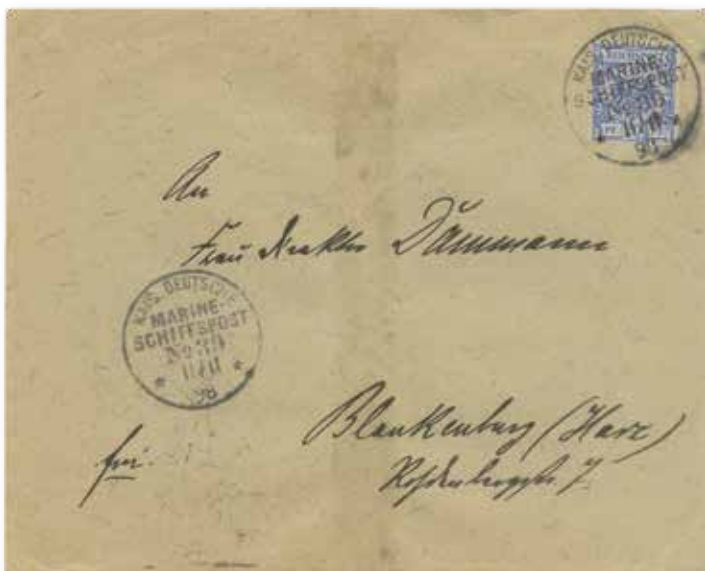 KAIS. DEUTSCHE
MARINE-
SCHIFFSPOST
An
Frau Direktor Dammann
KAIS. DEUTSCHE
MARINE-
SCHIFFSPOST
11/11
98
Blankenburg (Harz)
frei.